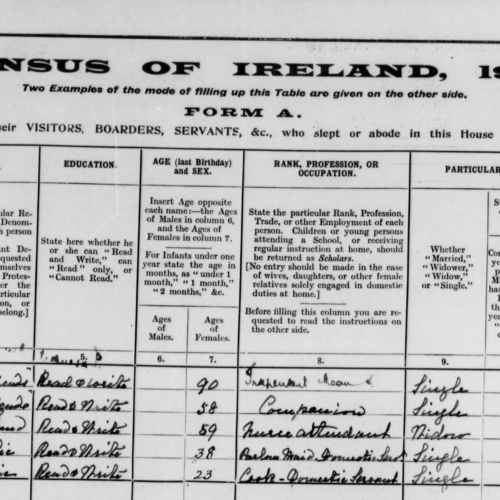 NSUS OF IRELAND, 19
Two Examples of the mode of filling up this Table are given on the other side.
FORM A.
heir VISITORS, BOARDERS, SERVANTS, &c., who slept or abode in this House
EDUCATION.
State here whether he or she can "Read and Write," can "Read" only, or "Cannot Read."
AGE (last Birthday) and SEX.
Insert Age opposite each name:—the Ages of Males in column 6, and the Ages of Females in column 7.
For Infants under one year state the age in months, as "under 1 month," "1 month," "2 months," &c.
Ages of Males.
Ages of Females.
RANK, PROFESSION, OR OCCUPATION.
State the particular Rank, Profession, Trade, or other Employment of each person. Children or young persons attending a School, or receiving regular instruction at home, should be returned as Scholars.
[No entry should be made in the case of wives, daughters, or other female relatives solely engaged in domestic duties at home.]
Before filling this column you are requested to read the instructions on the other side.
PARTICULAR
Whether "Married," "Widower," "Widow," or "Single."
5. 6. 7. 8. 9.
Read & write 90 Independent Single
Read & Write 58 Companion Single
Read & Write 59 Nurse attendant Widow
Read & Write 38 Parlour Maid Domestic Servt Single
Read & Write 23 Cook - Domestic Servant Single